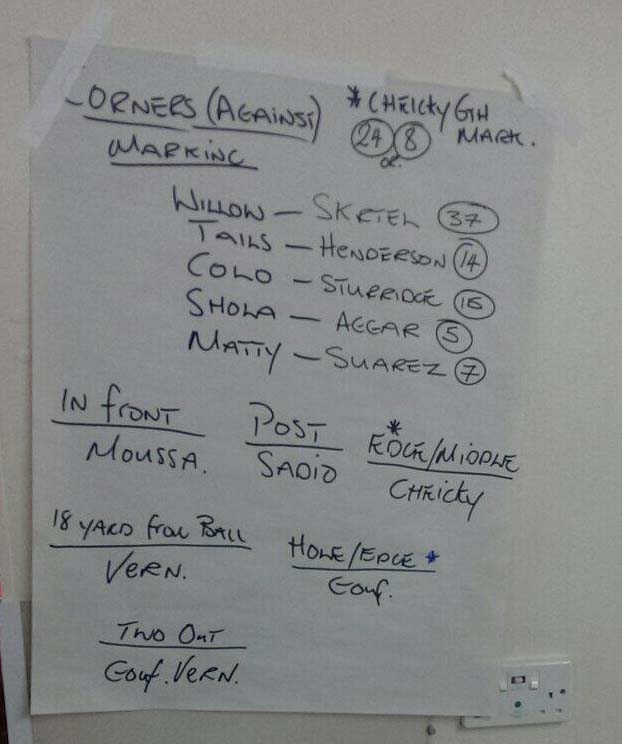 CORNERS (AGAINST)
MARKING
* CHEICKY 6TH
MARK.
24 8
or
WILLOW - SKRTEL 37
TAILS - HENDERSON 14
COLO - STURRIDGE 15
SHOLA - AGGAR 5
MATTY - SUAREZ 7
IN FRONT
MOUSSA.
POST
SADIO
*
EDGE/MIDDLE
CHEICKY
18 YARD FROM BALL
VERN.
HOLE/EDGE *
GOUF.
TWO OUT
GOUF. VERN.